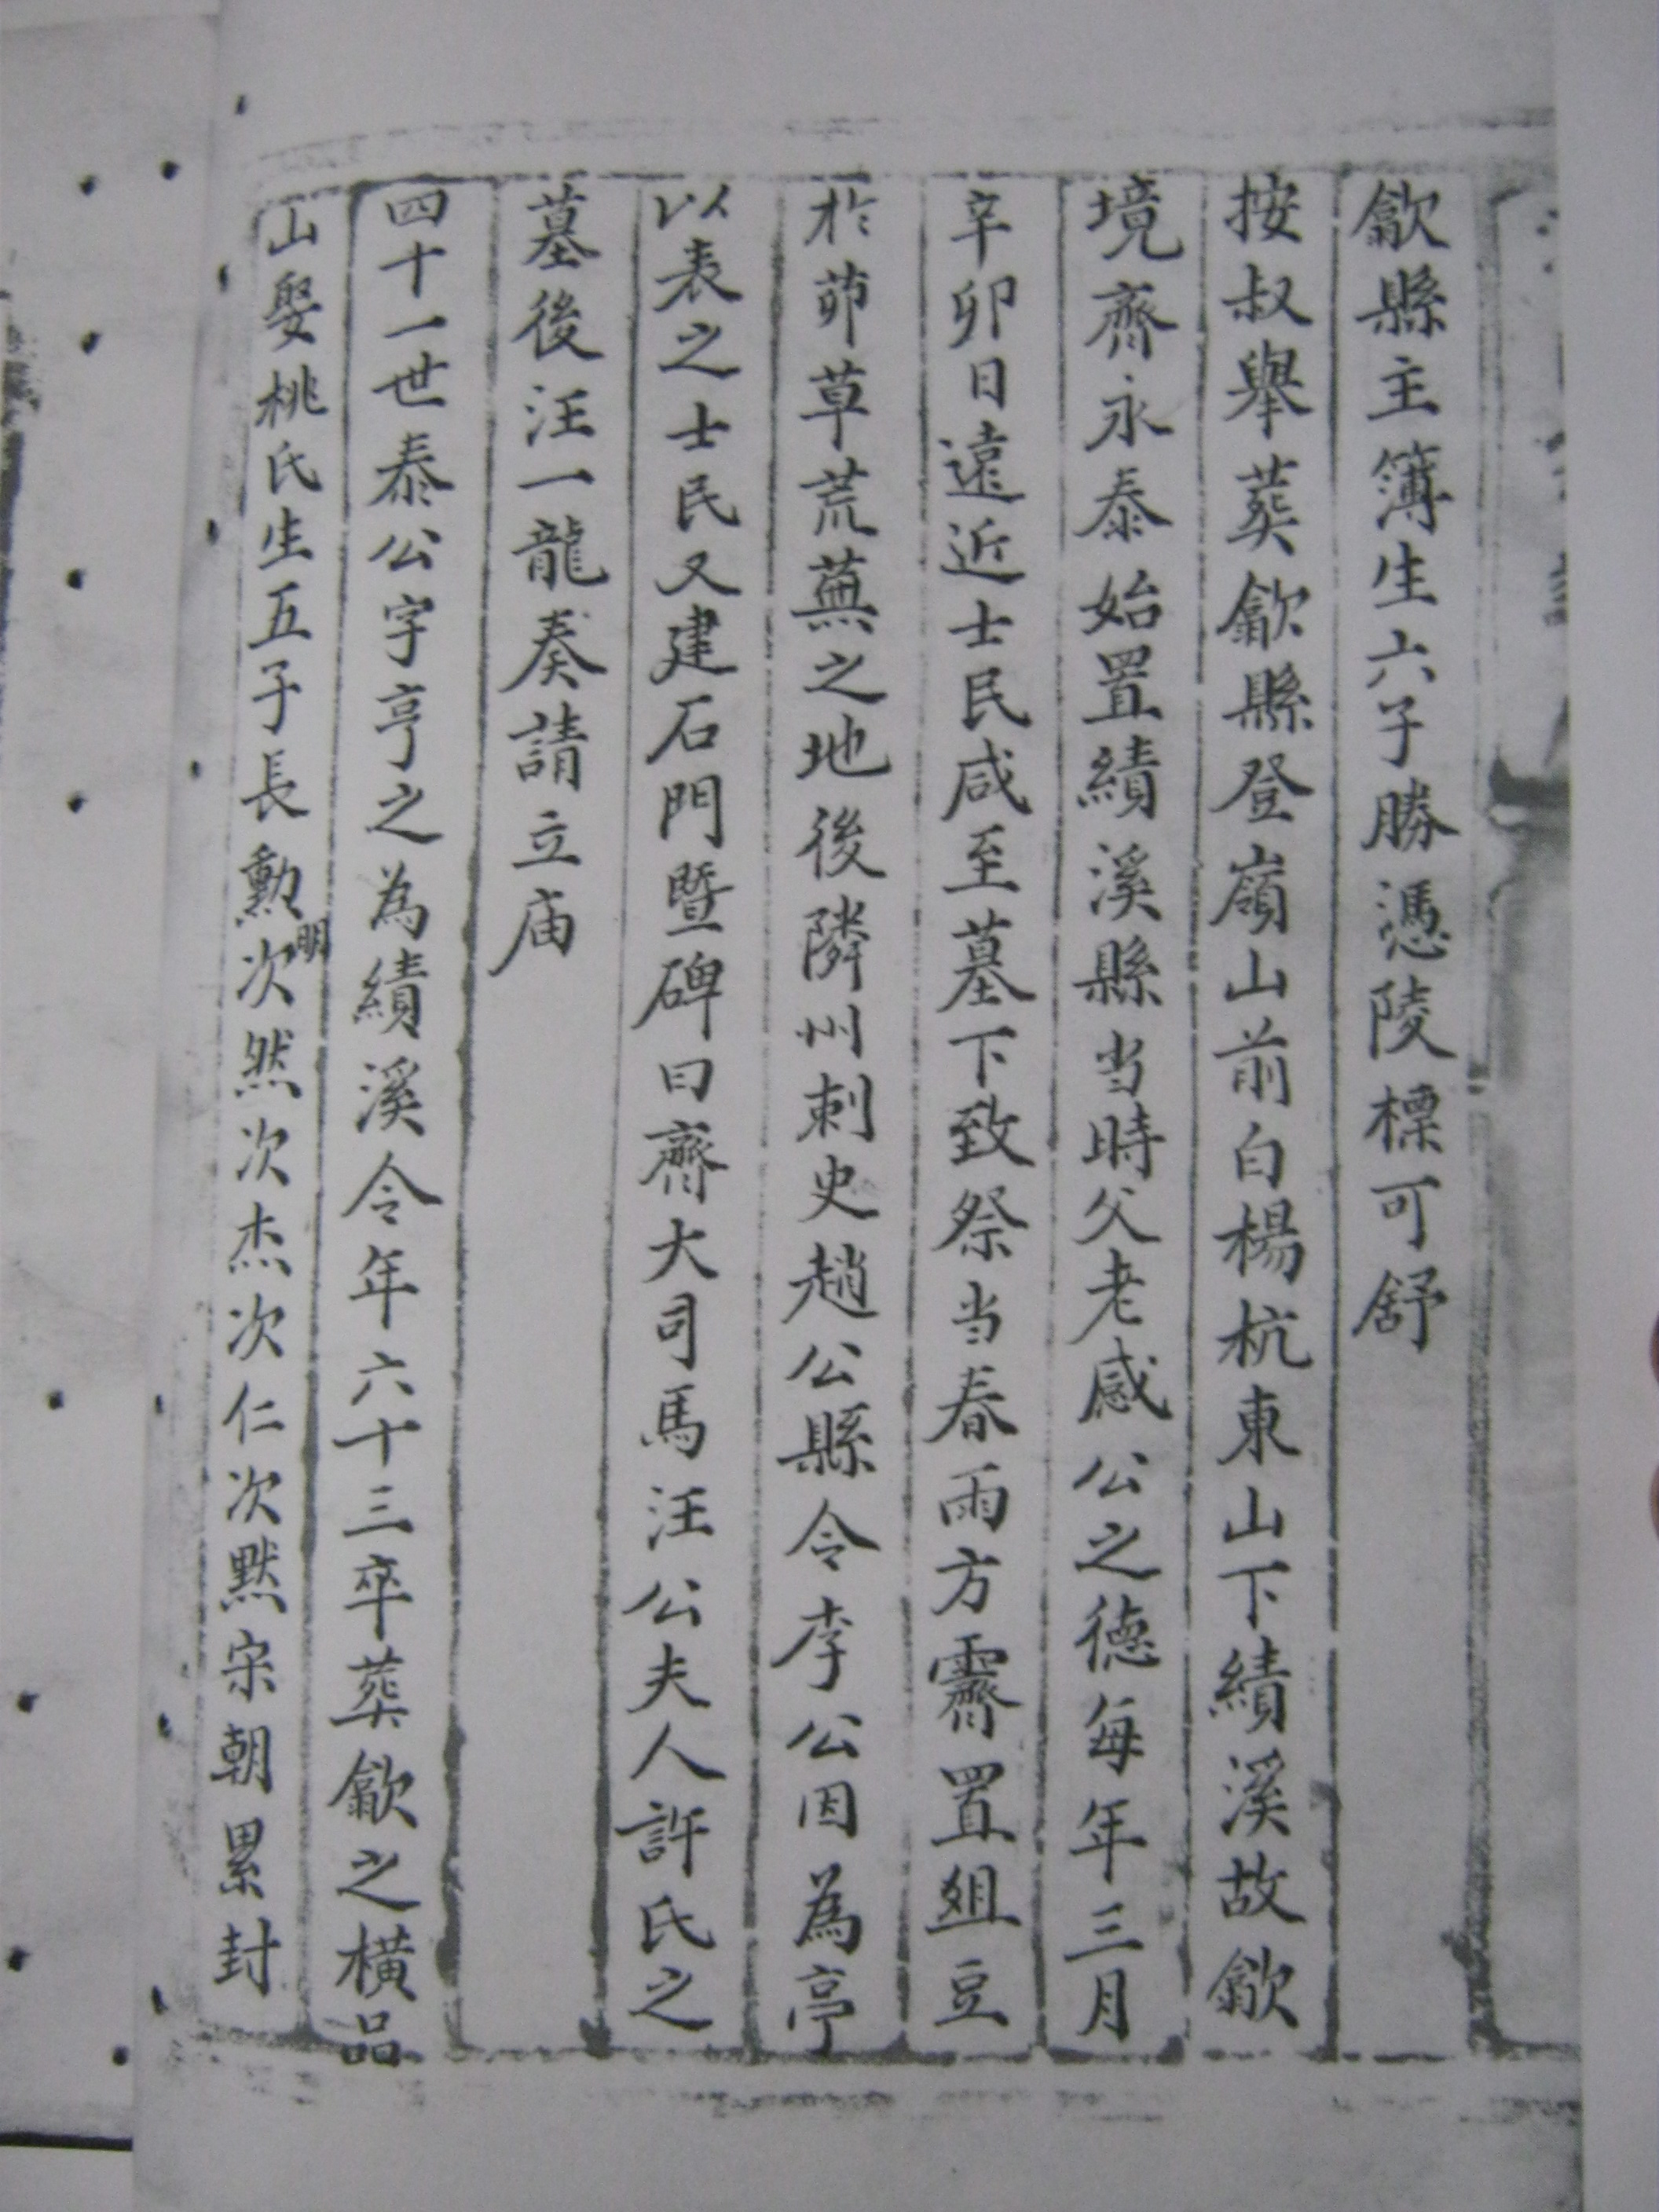 歙縣主簿生六子勝憑陵標可舒
按叔舉葬歙縣登嶺山前白楊杭東山下績溪故歙
境齊永泰始置績溪縣当時父老感公之德每年三月
辛卯日遠近士民咸至墓下致祭当春雨方霽置俎豆
於茆草荒蕪之地後隣州刺史趙公縣令李公因為亭
以表之士民又建石門暨碑曰齊大司馬汪公夫人許氏之
墓後汪一龍奏請立庙
四十一世泰公字亨之為績溪令年六十三卒葬歙之橫品
山娶桃氏生五子長勲明次然次杰次仁次默宋朝累封